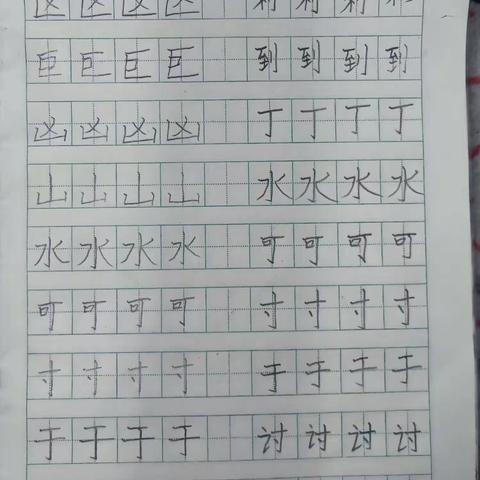 区区区区 利利利利
巨巨巨巨 到到到到
凶凶凶凶 丁丁丁丁
山山山山 水水水水
水水水水 可可可可
可可可可 寸寸寸寸
寸寸寸寸 于于于于
于于于于 讨讨讨讨